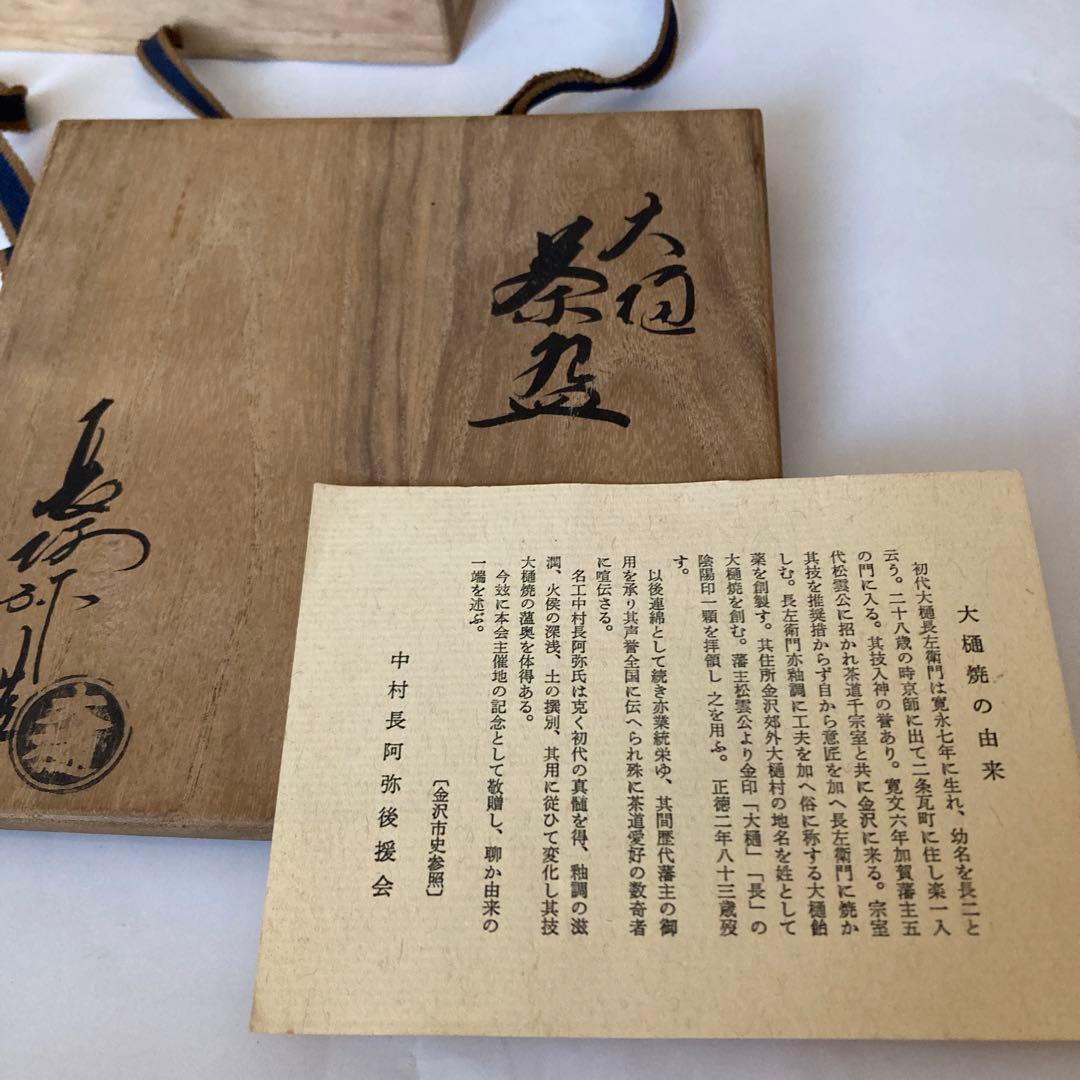 大樋
茶盌
長阿弥造
大樋焼の由来
初代大樋長左衛門は寛永七年に生れ、幼名を長二と
云う。二十八歳の時京師に出て二条瓦町に住し楽一入
の門に入る。其技入神の誉あり。寛文六年加賀藩主五
代松雲公に招かれ茶道千宗室と共に金沢に来る。宗室
其技を推奨措からず自から意匠を加へ長左衛門に焼か
しむ。長左衛門亦釉調に工夫を加へ俗に称する大樋飴
薬を創製す。其住所金沢郊外大樋村の地名を姓として
大樋焼を創む。藩主松雲公より金印「大樋」「長」の
陰陽印一顆を拝領し之を用ふ。正徳二年八十三歳歿
す。
以後連綿として続き亦業統栄ゆ、其間歴代藩主の御
用を承り其声誉全国に伝へられ殊に茶道愛好の数奇者
に喧伝さる。
名工中村長阿弥氏は克く初代の真髄を得、釉調の滋
潤、火侯の深浅、土の撰別、其用に従ひて変化し其技
大樋焼の薀奥を体得ある。
今玆に本会主催地の記念として敬贈し、聊か由来の
一端を述ぶ。
〔金沢市史参照〕
中村長阿弥後援会